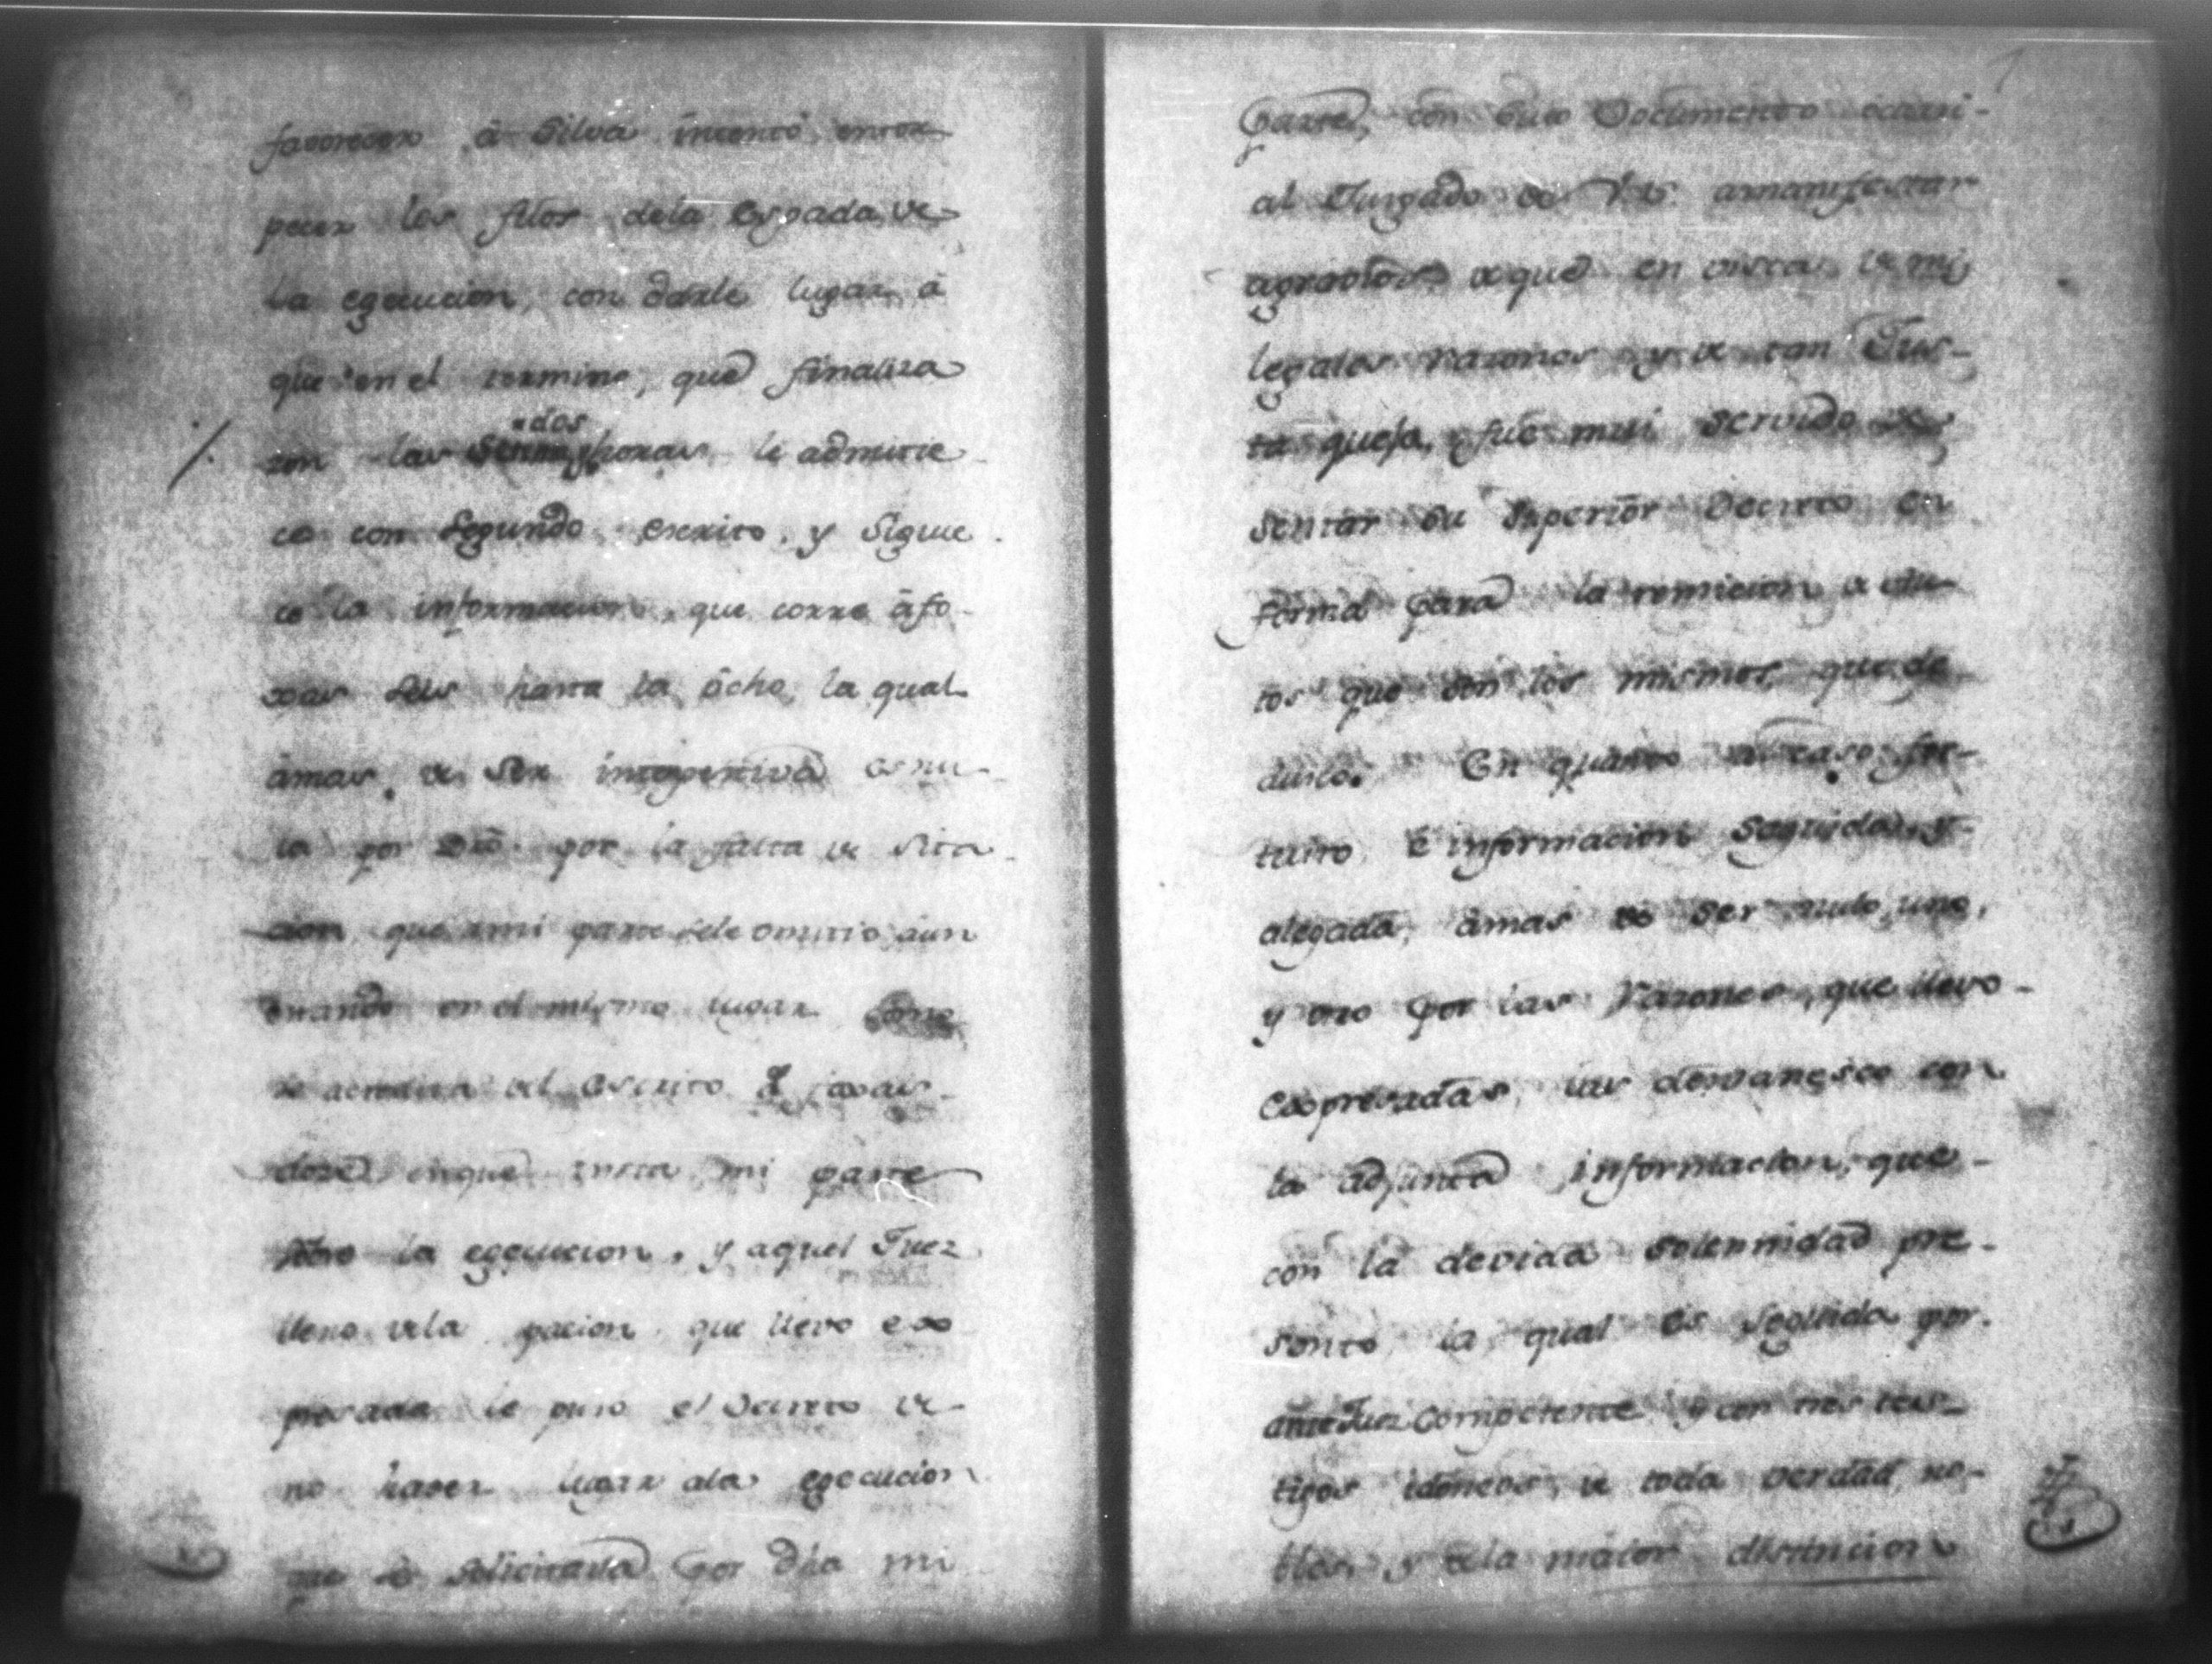 favorecer â Silva intentó entor
pecer los filos dela Espada de
la egecucion, con darle lugar â
que en el termino, que finaliza
ron las dos horas le admitie
ce con Segundo escrito, y Siguie
ce la informacion, que corre âfo
xas Seis hasta la ôcho, la qual
âmas de Ser intempestiva es nu
la por Dro. por la falta de Sita
cion, que ami parte sele omitio aun
cuando en el mismo lugar como
se acredita del escrito de foxas
doze enque insta mi parte
sobre la egecucion, y aquel Juez
lleno dela pacion, que llevo ex
presada le puso el Decreto de
no haver lugar ala egecucion
que se solicitava por dha mi
parte, con cuio Documento ocurri
al Jusgado de V.S. amanifestar
agravios de que en vista de mi
legales razones y de tan Jus-
ta queja, fue mui servido de
sentar su Superior Decreto en
forma para la remicion de Au
tos que son los mismos, que de
duzco. En quanto al caso for-
tuito è informacion Seguida, y
alegada, âmas de ser nulo uno,
y otro por las razones, que llevo
expresadas, las desvanesco con
la adjunta informacion, que
con la devida solemnidad pre-
sento la qual es seguida por
ante Juez Competente y con tres tes-
tigos idoneos, de toda verdad, no-
bles, y dela maior distincion